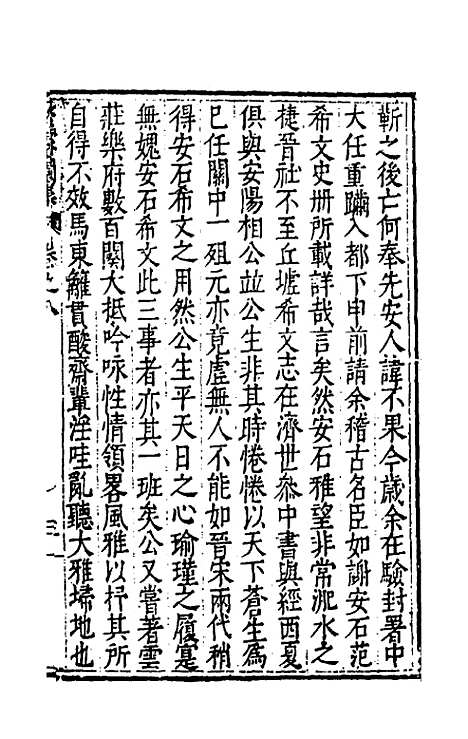 斬之後亡何奉先安人諱不果今歲余在驗封署中
大任重躪入都下申前請余稽古名臣如謝安石范
希文史册所載詳哉言矣然安石雅望非常淝水之
捷晉社不至丘墟希文志在濟世叅中書與經西夏
俱與安陽相公並公生非其時惓惓以天下蒼生爲
巳任關中一殂元亦竟虛無人不能如晉宋兩代稍
得安石希文之用然公生平天日之心瑜瑾之履寔
無媿安石希文此三事者亦其一班矣公又嘗著雲
莊樂府數百闋大抵吟咏性情領畧風雅以抒其所
自得不效馬東籬貫酸齋輩淫哇亂聽大雅埽地也